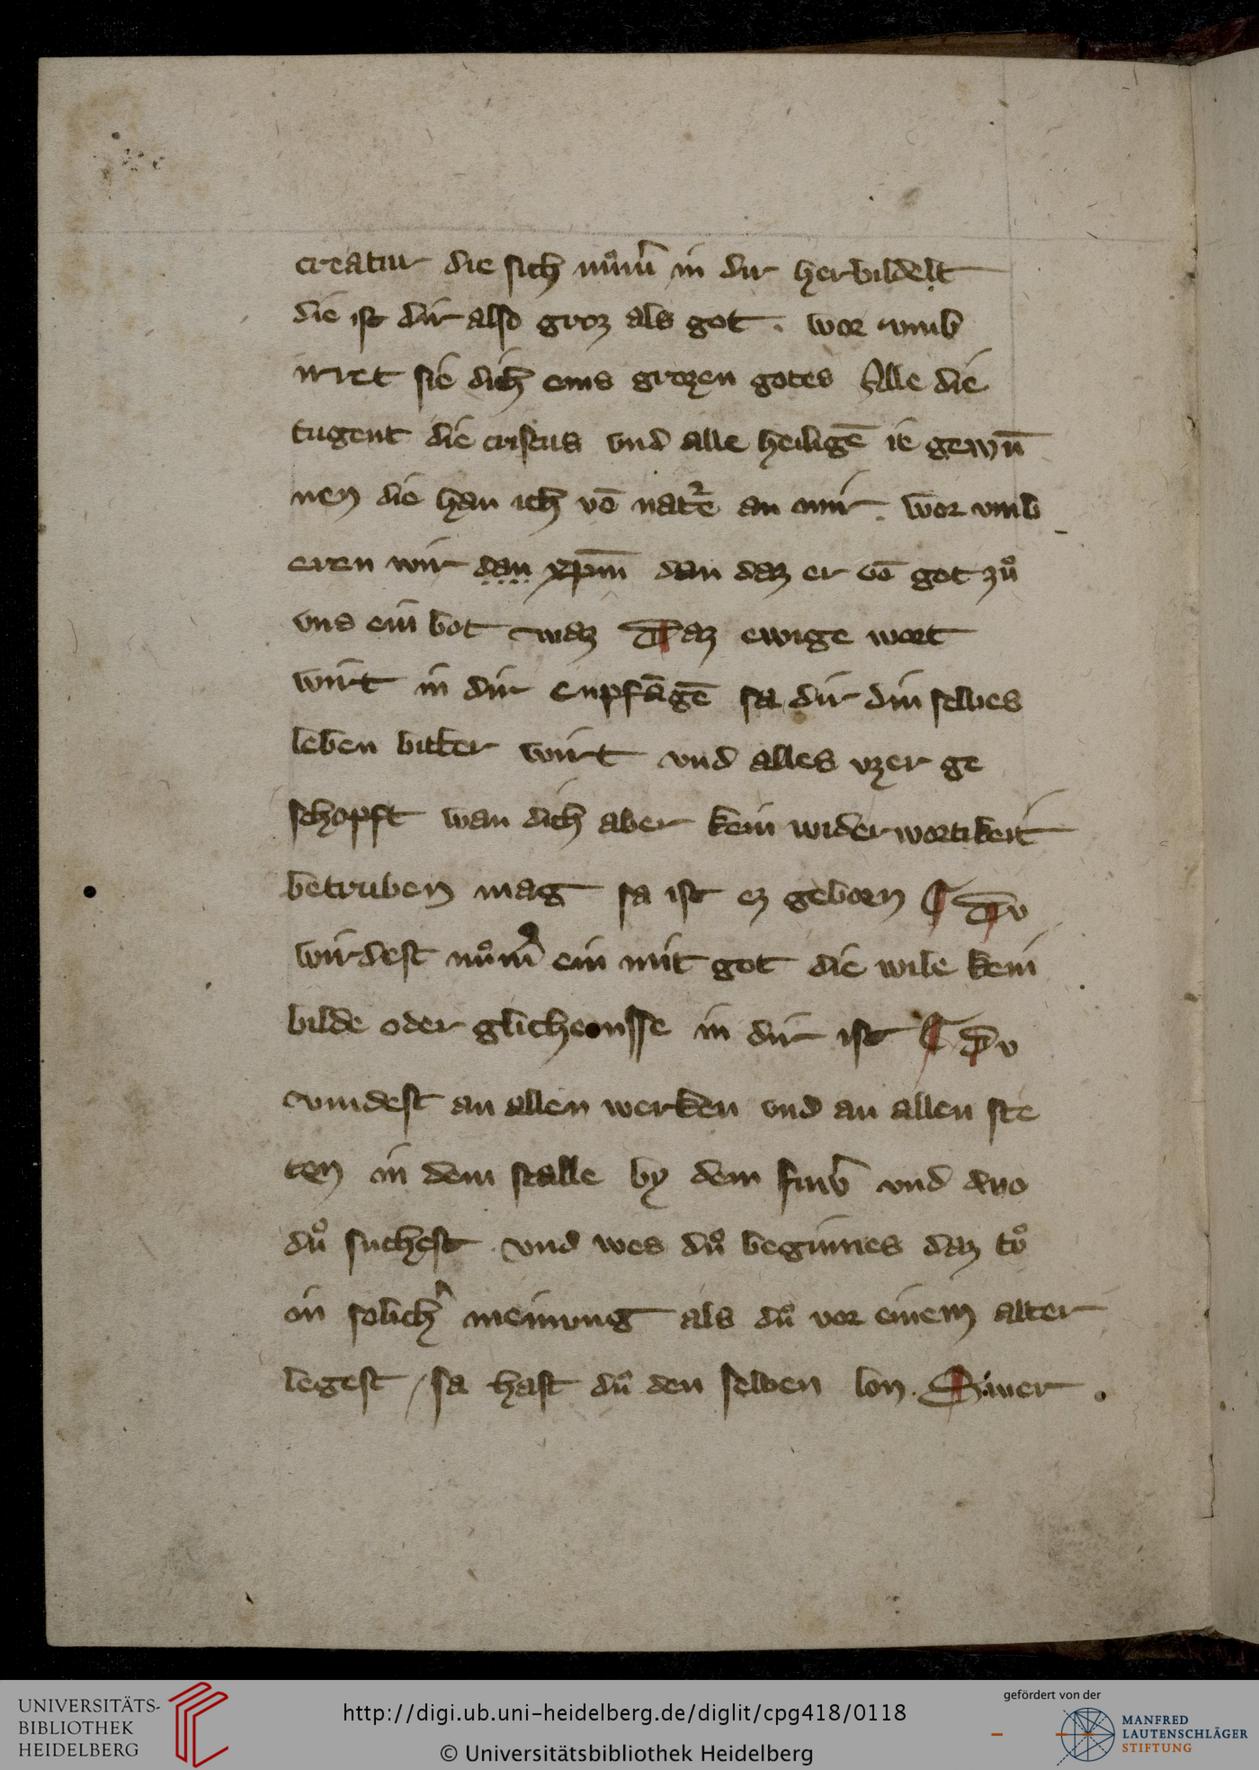 creatur die sich nuͦm̄ in dir herbildelt
die ist dir also groz als got . wor vmb
irret sie dich eins grozen gotes Alle die
tugent die cristus vnd alle heiligē ie gewū
nen die han ich vō natˀe an mir . wor vmb
eren wir dan xpm̄ dan daz er vō got zuͦ
vns ein bot waz Daz ewige wort
wirt in dir enpfāgē sa dir din selbes
leben bitter wirt vnd alles vzer ge
schopft wan dich aber kein widerwortikeit
betruben mag sa ist ez geborn ¶ Dv
wirdest nuͦmˀ ein mit got die wile kein
bilde oder glichenisse in dir ist ¶ Dv
vindest an allen werken vnd an allen ste
ten in dem stalle by dem und wo
duͦ suchest vnd wes duͦ beginnes daz toͮ
in solichˀ meinung als duͦ vor einem alter
legest / sa hast duͦ den selben lon . Swer .
UNIVERSITÄTS-
BIBLIOTHEK
HEIDELBERG
http://digi.ub.uni-heidelberg.de/diglit/cpg418/0118
© Universitätsbibliothek Heidelberg
gefördert von der
MANFRED
LAUTENSCHLÄGER
STIFTUNG